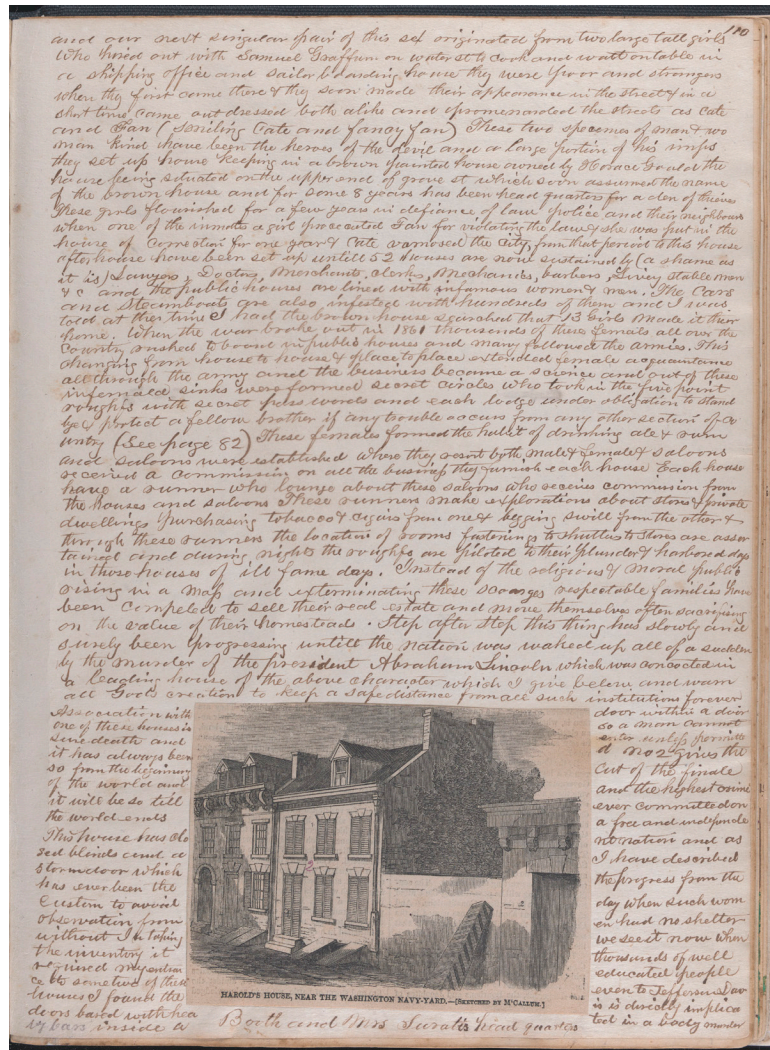 110
and our next singular pair of this sex originated from two large tall girls
who hired out with Samuel Graffum on water st to cook and wait on table in
a shipping office and sailor boarding house they were poor and strangers
when they first came there & they soon made their appearance in the street & in a
short time came out dressed both alike and promenaded the streets as Cate
and Fan (Smiling Cate and fancy fan) These two specimens of man & wo
man kind have been the heroes of the devil and a large portion of his imps
they set up house keeping in a brown painted house owned by Horace Gould the
house being situated on the upper end of grove st which soon assumed the name
of the brown house and for some 8 years has been head quarters for a den of theives
these girls flourished for a few years in defiance of law police and their neighbours
when one of the inmates a girl prosecuted Fan for violating the law & she was put in the
house of correction for one year & Cate vamosed the city, from that period to this house
after house have been set up untill 52 houses are now sustained by (a shame as
it is) Lawyers, Doctors, Merchants, clerks, Mechanics, barbers, Livery stable men
& c and the public houses are lined with infamous women & men. The Cars
and Steamboats are also infested with hundreds of them and I was
told at the time I had the brown house searched that 13 Girls made it their
home. When the war broke out in 1861 thousands of these females all over the
Country rushed to board in public houses and many followed the armies. This
changing from house to house & place to place extended female acquaintance
all through the army and the business became a science and out of these
infernal sinks were formed secret circles who took in the five point
roughs with secret pass words and each lodge under obligation to stand
by & protect a fellow brother if any trouble occurs from any other section of co
untry (See page 82) These females formed the habit of drinking ale & rum
and saloons were established where they resort both male & female & saloons
received a commission on all the business they furnish each house Each house
have a runner who lounge about these saloons who receives commission from
the houses and saloons These runners make explorations about stores & private
dwellings purchasing tobacco & cigars from one & begging swill from the other &
through these runners the location of rooms fastenings to shutters to stores are asser
tained and during nights the roughs are piloted to their plunder & harbored days
in those houses of ill fame days. Instead of the religious & moral public
rising in a mob and exterminating these scourges respectable families have
been compeled to sell their real estate and move themselves often sacrifising
on the value of their homesteads. Step after step this thing has slowly and
surely been progressing untill the nation was waked up all of a sudden
by the murder of the president Abraham Lincoln which was concocted in
a leading house of the above character which I give below and warn
all Gods creation to keep a safe distance from all such institutions forever
Association with
one of these houses is
sure death and
it has always been
so from the beginning
of the world and
it will be so till
the world ends
This house has clo
sed blinds and a
storm door which
has ever been the
Custom to avoid
observation from
without In taking
the inventory it
required my entran
ce to some two of these
houses I found the
doors bared with hea
vy bars inside a
door within a door
so a man cannot
enter unless permitte
d No 2 gives the
cut of the finale
and the highest crime
ever committed on
a free and independe
nt nation and as
I have described
the progress from the
day when such wom
en had no shelter
we see it now when
thousands of well
educated people
even to Jefferson Dav
is is directly implica
ted in a body murder
2
HAROLD'S HOUSE, NEAR THE WASHINGTON NAVY-YARD.—[SKETCHED BY M'CALLUM.]
Booth and Mrs Suratts head quarters